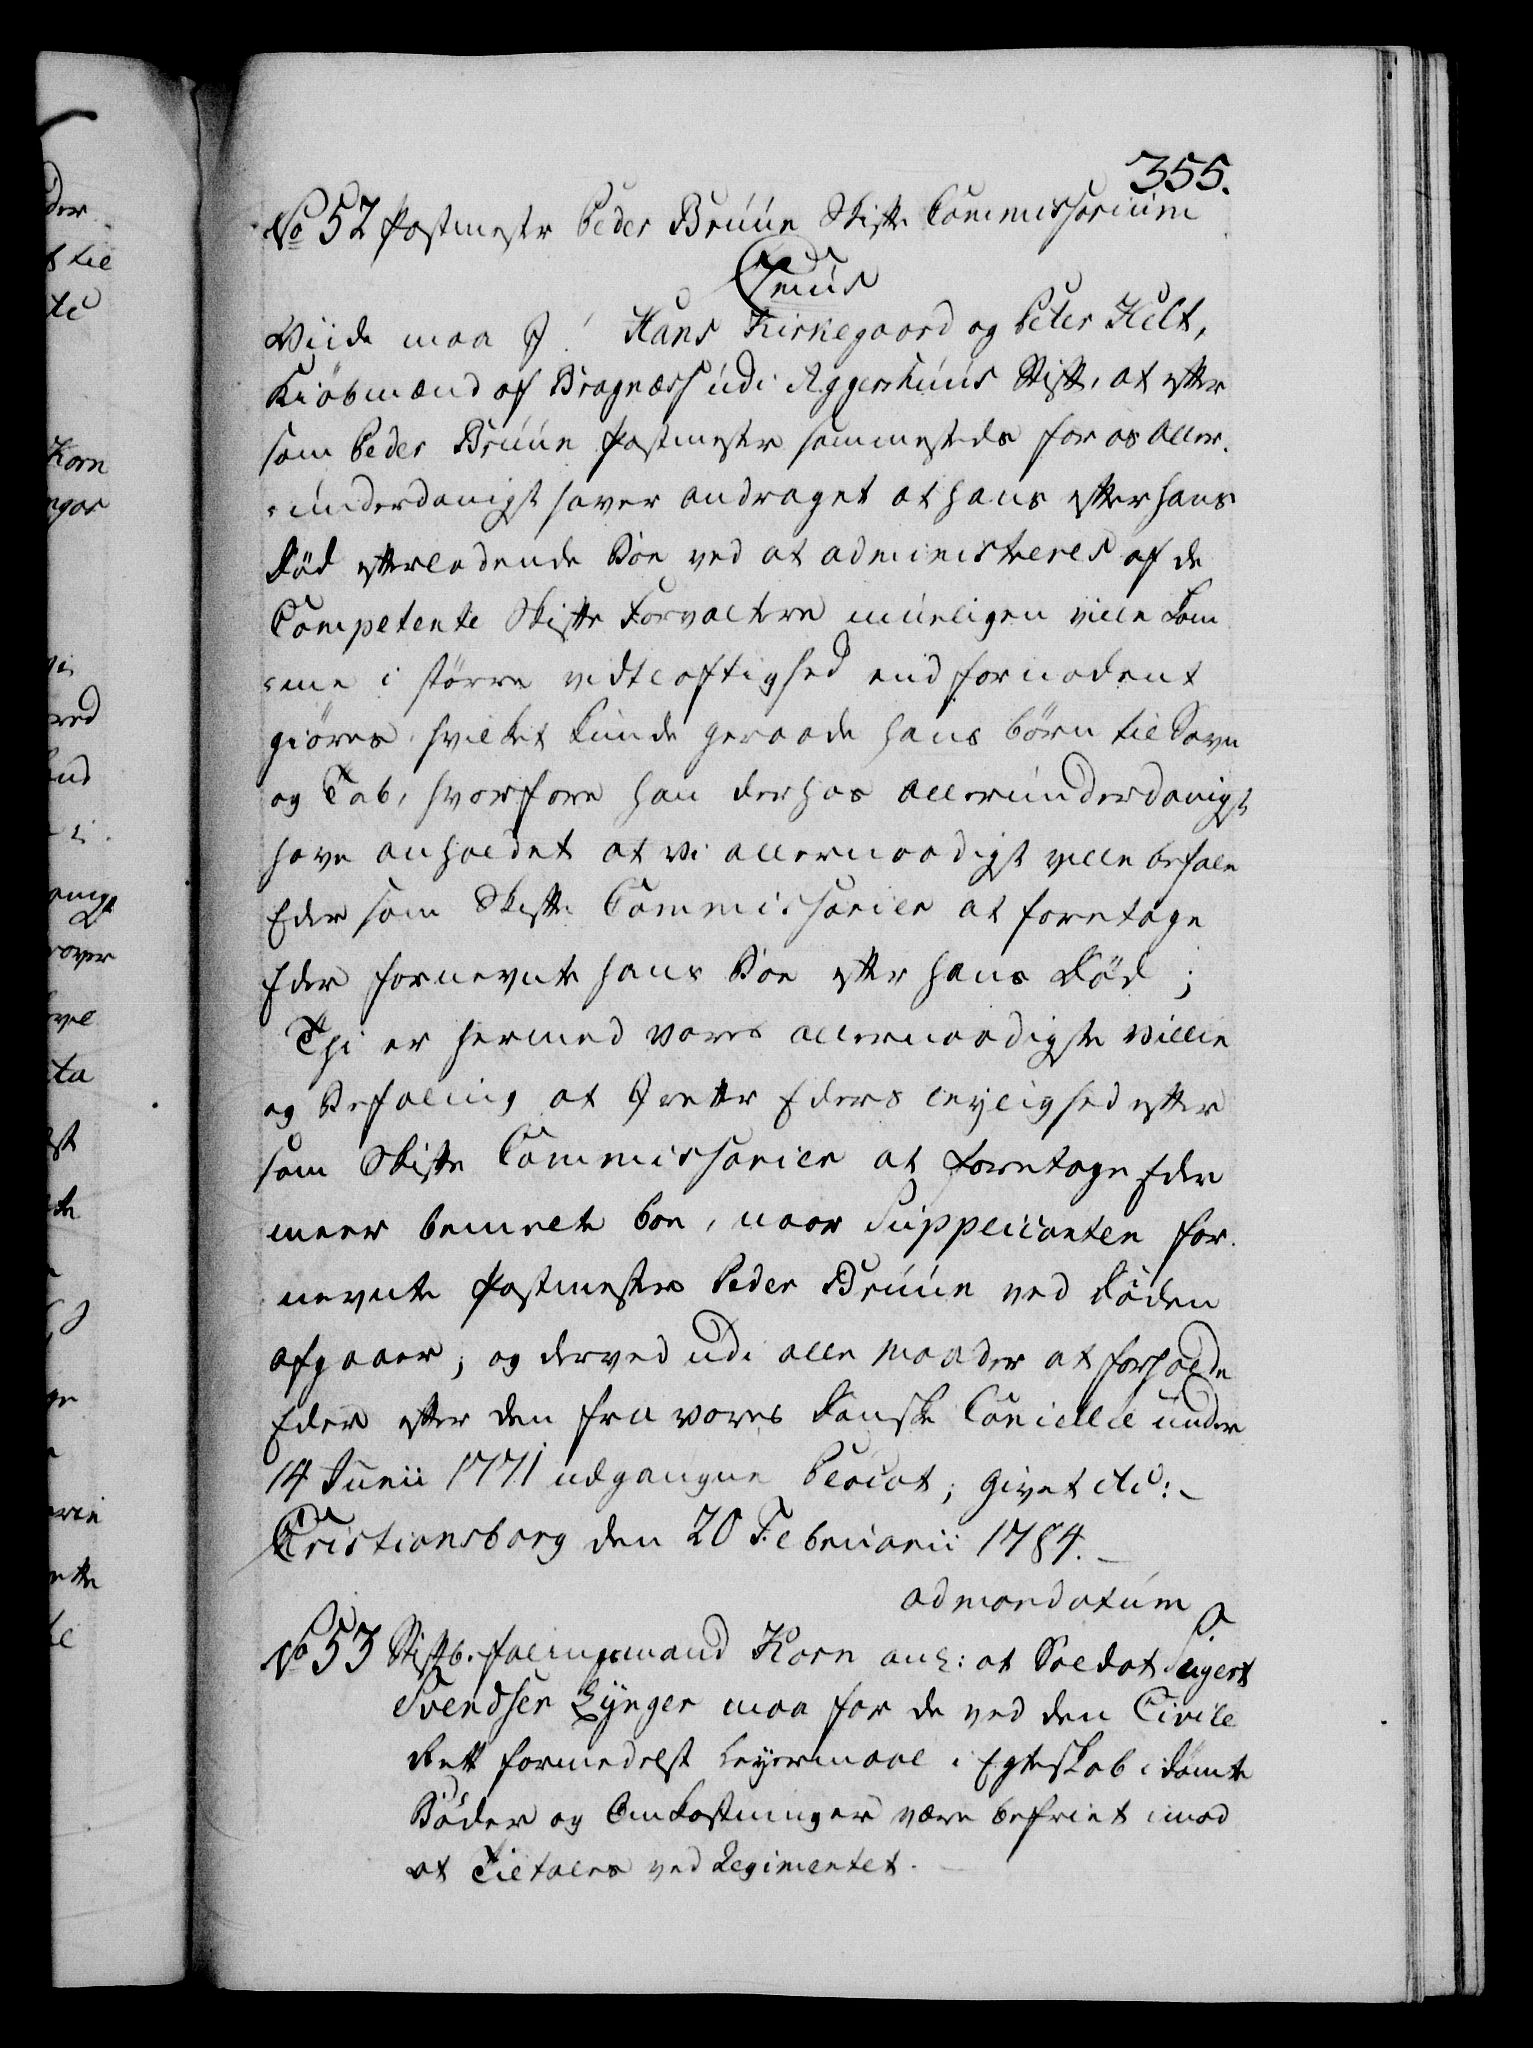 355.
No 52 Postmester Peder Bruun Skifte Commissorium
C 7mus
Viide maa I! Hans Kirkegaard og Peter Kelt,
Kiöbmænd af Bragnæss udi Aggershuus Stift, at efter
som Peder Bruun Postmester sammesteds for os aller-
underdanigst haver andraget at hans efter hans
Död efterladende Boe ved at administreres af de
Competente Skifte Forvaltere mueligen ville kom
me i större vidtløftighed end fornødent
giöres, hvilket kunde geraade hans börn til Savn
og Tab, hvorfore han derhos allerunderdanigst
have anholdet at vi allernaadigst ville befale
Eder som Skifte Commissarier at foretage
Eder fornevnte hans Boe efter hans Død;
Thi er hermed vores allernaadigste villie
og Befaling at I retter Eders leylighed efter
som Skifte Commissarier at foretage Eder
meer bemelte boe, naar Supplicanten for-
nevnte Postmester Peder Bruun ved Döden
afgaaer; og derved udi alle Maader at forholde
Eder efter den fra vores Danske Cancellie under
14 Junii 1771 udgangne Placat; Givet etc:
Cristiansborg den 20 Februarii 1784.
ad mandatum
No 53 Stiftbefalingsmand Korn anh: at Soldat Sygert
Svendsen Lynger maa for de ved den Civile
Rett formedelst Leyermaal i Egteskab idömte
Böder og Omkostninger være befriet imod
at Tiltales ved Regimentet.